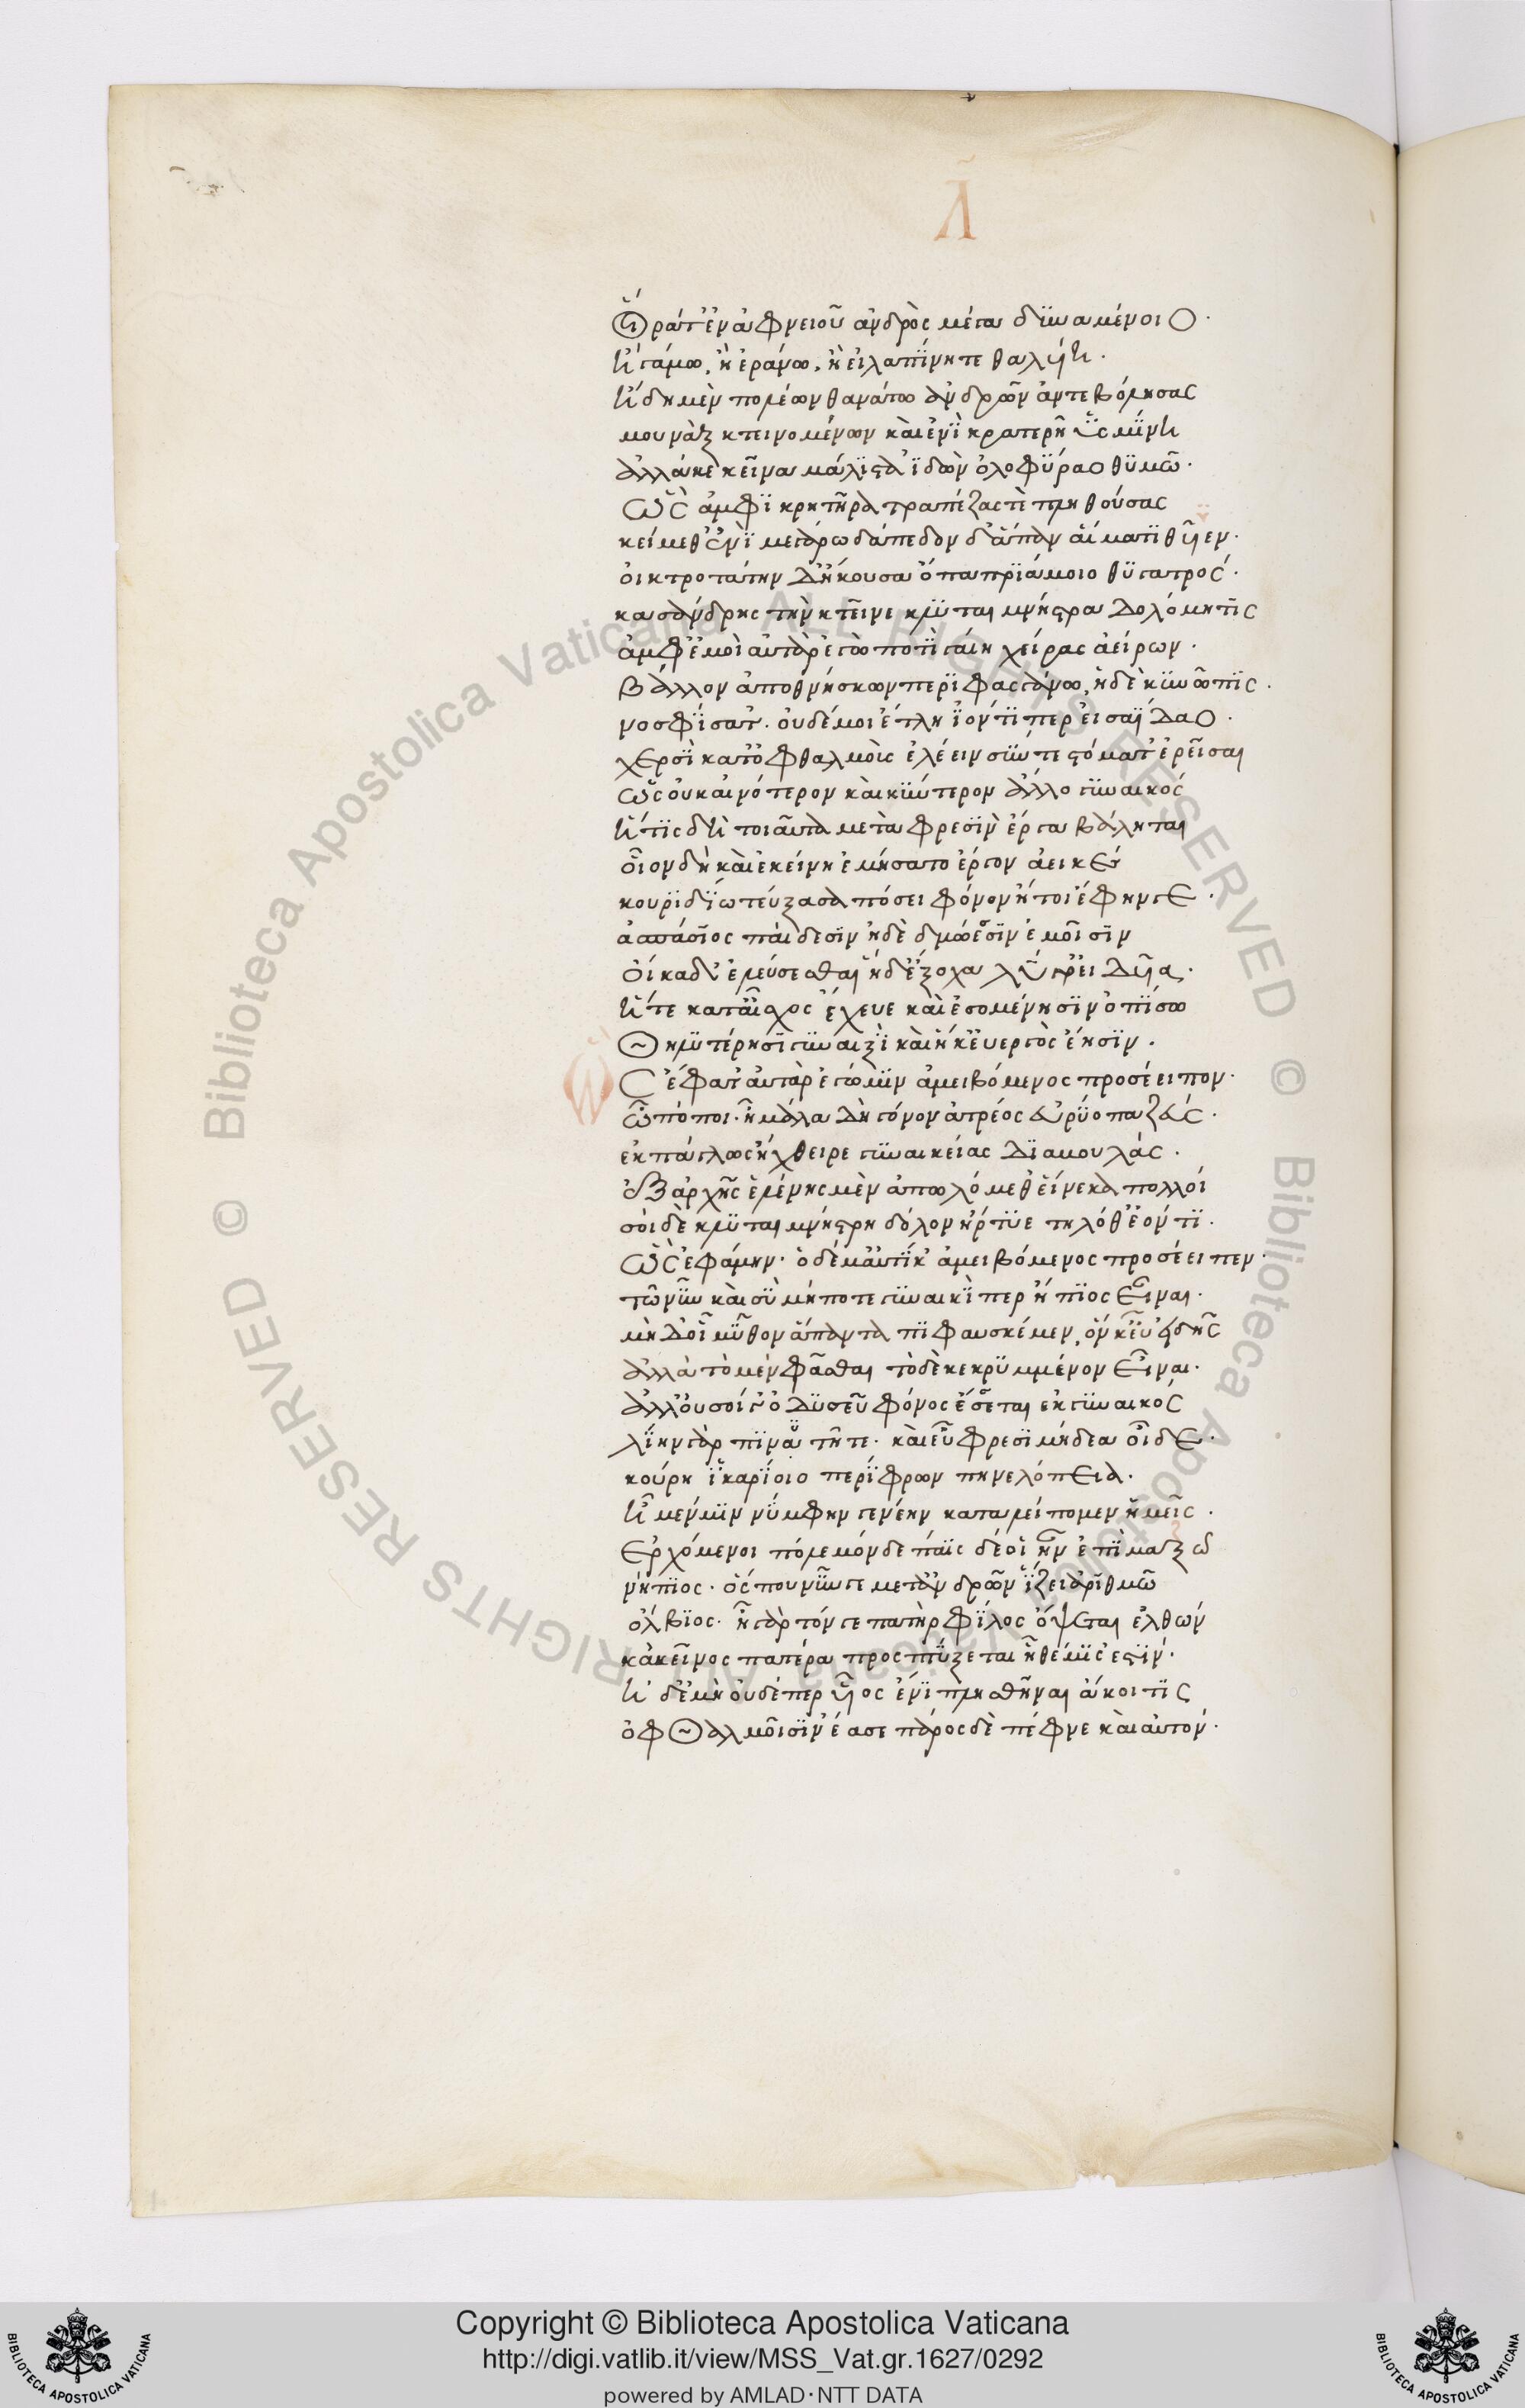 Λ
ὅι ῥά τ' ἐν ἀφνειοῦ ἀνδρὸς μέγα δυναμένοιο·
ἢ γάμω, ἢ ἐράνω, ἢ εἰλαπίνη τεθαλυίη·
ἤδη μὲν πολέων θανάτω ἀνδρῶν ἀντεβόλησας
μουνὰξ κτεινομένων καὶ ἐνὶ κρατερῆ ὑσμίνη
ἀλλά κε κεῖνα μάλιστα ἰδὼν ὀλοφύραο θυμῶ·
ὣς ἀμφὶ κρητῆρα τραπέζας τὲ πληθούσας
κείμεθ' ἐνὶ μεγάρω δάπεδον δ' ἅπαν αἵματι θῦεν·
οἰκτροτάτην δ' ἤκουσα ὄπα πριάμοιο θυγατρός·
κασάνδρης τὴν κτεῖνε κλυταιμνήστρα δολόμητις
ἀμφ' ἐμοὶ αὐτὰρ ἐγὼ ποτὶ γαίη χεῖρας ἀείρων·
βάλλον ἀποθνήσκων περὶ φασγάνω, ἡ δὲ κυνῶπις·
νοσφίσατ'· οὐδέ μοι ἔτλη ἰόντι περ εἰς ἀΐδαο·
χερσὶ κατ' ὀφθαλμοὺς ἑλέειν σύν τε στόματ' ἐρεῖσαι
ὣς οὐκ αἰνότερον καὶ κύντερον ἄλλο γυναικός
ἥ τις δὴ τοιαῦτα μετὰ φρεσὶν ἔργα βάληται
οἷον δὴ καὶ ἐκείνη ἐμήσατο ἔργον ἀεικές
κουριδίω τεύξασα πόσει φόνον ἤτοι ἔφην γε·
ἀσπάσιος παίδεσιν ἠδὲ δμώεσσιν ἐμοῖσιν
οἴκαδ' ἐλεύσεσθαι ἡ δ' ἔξοχα λύγρ' εἰδυῖα·
ἥ τε κατ' αἶσχος ἔχευε καὶ ἐσομένησιν ὀπίσω
θηλυτέρησι γυναιξὶ καὶ ἥ κ' εὐεργὸς ἔησιν·
ὣς ἔφατ' αὐτὰρ ἐγώ μιν ἀμειβόμενος προσέειπον·
ὦ πόποι· ἦ μάλα δὴ γόνον ἀτρέος εὐρύοπα ζεύς·
ἐκπάγλως ἤχθειρε γυναικείας διὰ βουλάς·
ἐξ ἀρχῆς ἑλένης μὲν ἀπωλόμεθ' εἵνεκα πολλοί
σοὶ δὲ κλυταιμνήστρη δόλον ἤρτυε τηλόθ' ἐόντι·
ὣς ἐφάμην· ὁ δέ μ' αὐτίκ' ἀμειβόμενος προσέειπεν·
τῶ νῦν καὶ σὺ μή ποτε γυναικί περ ἤπιος εἶναι·
μὴ δ' οἷ μῦθον ἅπαντα πιφαυσκέμεν, ὅν κ' εὖ εἰδῆς
ἀλλὰ τὸ μὲν φᾶσθαι τὸ δὲ κεκρυμμένον εἶναι·
ἀλλ' οὐ σοί γ' ὀδυσεῦ φόνος ἔσσεται ἐκ γυναικός
λίην γὰρ πινυτή τε· καὶ εὖ φρεσὶ μήδεα οἶδε·
κούρη ἰκαρίοιο περίφρων πηνελόπεια·
ἦ μέν μιν νύμφην γε νέην κατελείπομεν ἡμεῖς·
ἐρχόμενοι πόλεμόνδε πάϊς δέ οἱ ἦν ἐπὶ μαζῶ
νήπιος· ὅς που νῦν γε μετ' ἀνδρῶν ἵζει ἀριθμῶ
ὄλβιος· ἦ γὰρ τόν γε πατὴρ φίλος ὄψεται ἐλθών
κἀκεῖνος πατέρα προσπτύξεται ἣ θέμις ἐστίν·
ἡ δ' ἐμὴ οὐδέ περ υἷος ἐνιπλησθῆναι ἄκοιτις
ὀφθαλμοῖσιν ἔασε πάρος δὲ πέφνε καὶ αὐτόν·
Biblioteca Apostolica Vaticana ALL RIGHTS RESERVED ©
Biblioteca Apostolica Vaticana ALL RIGHTS RESERVED ©
Copyright © Biblioteca Apostolica Vaticana
http://digi.vatlib.it/view/MSS_Vat.gr.1627/0292
powered by AMLAD·NTT DATA
BIBLIOTECA APOSTOLICA VATICANA
BIBLIOTECA APOSTOLICA VATICANA